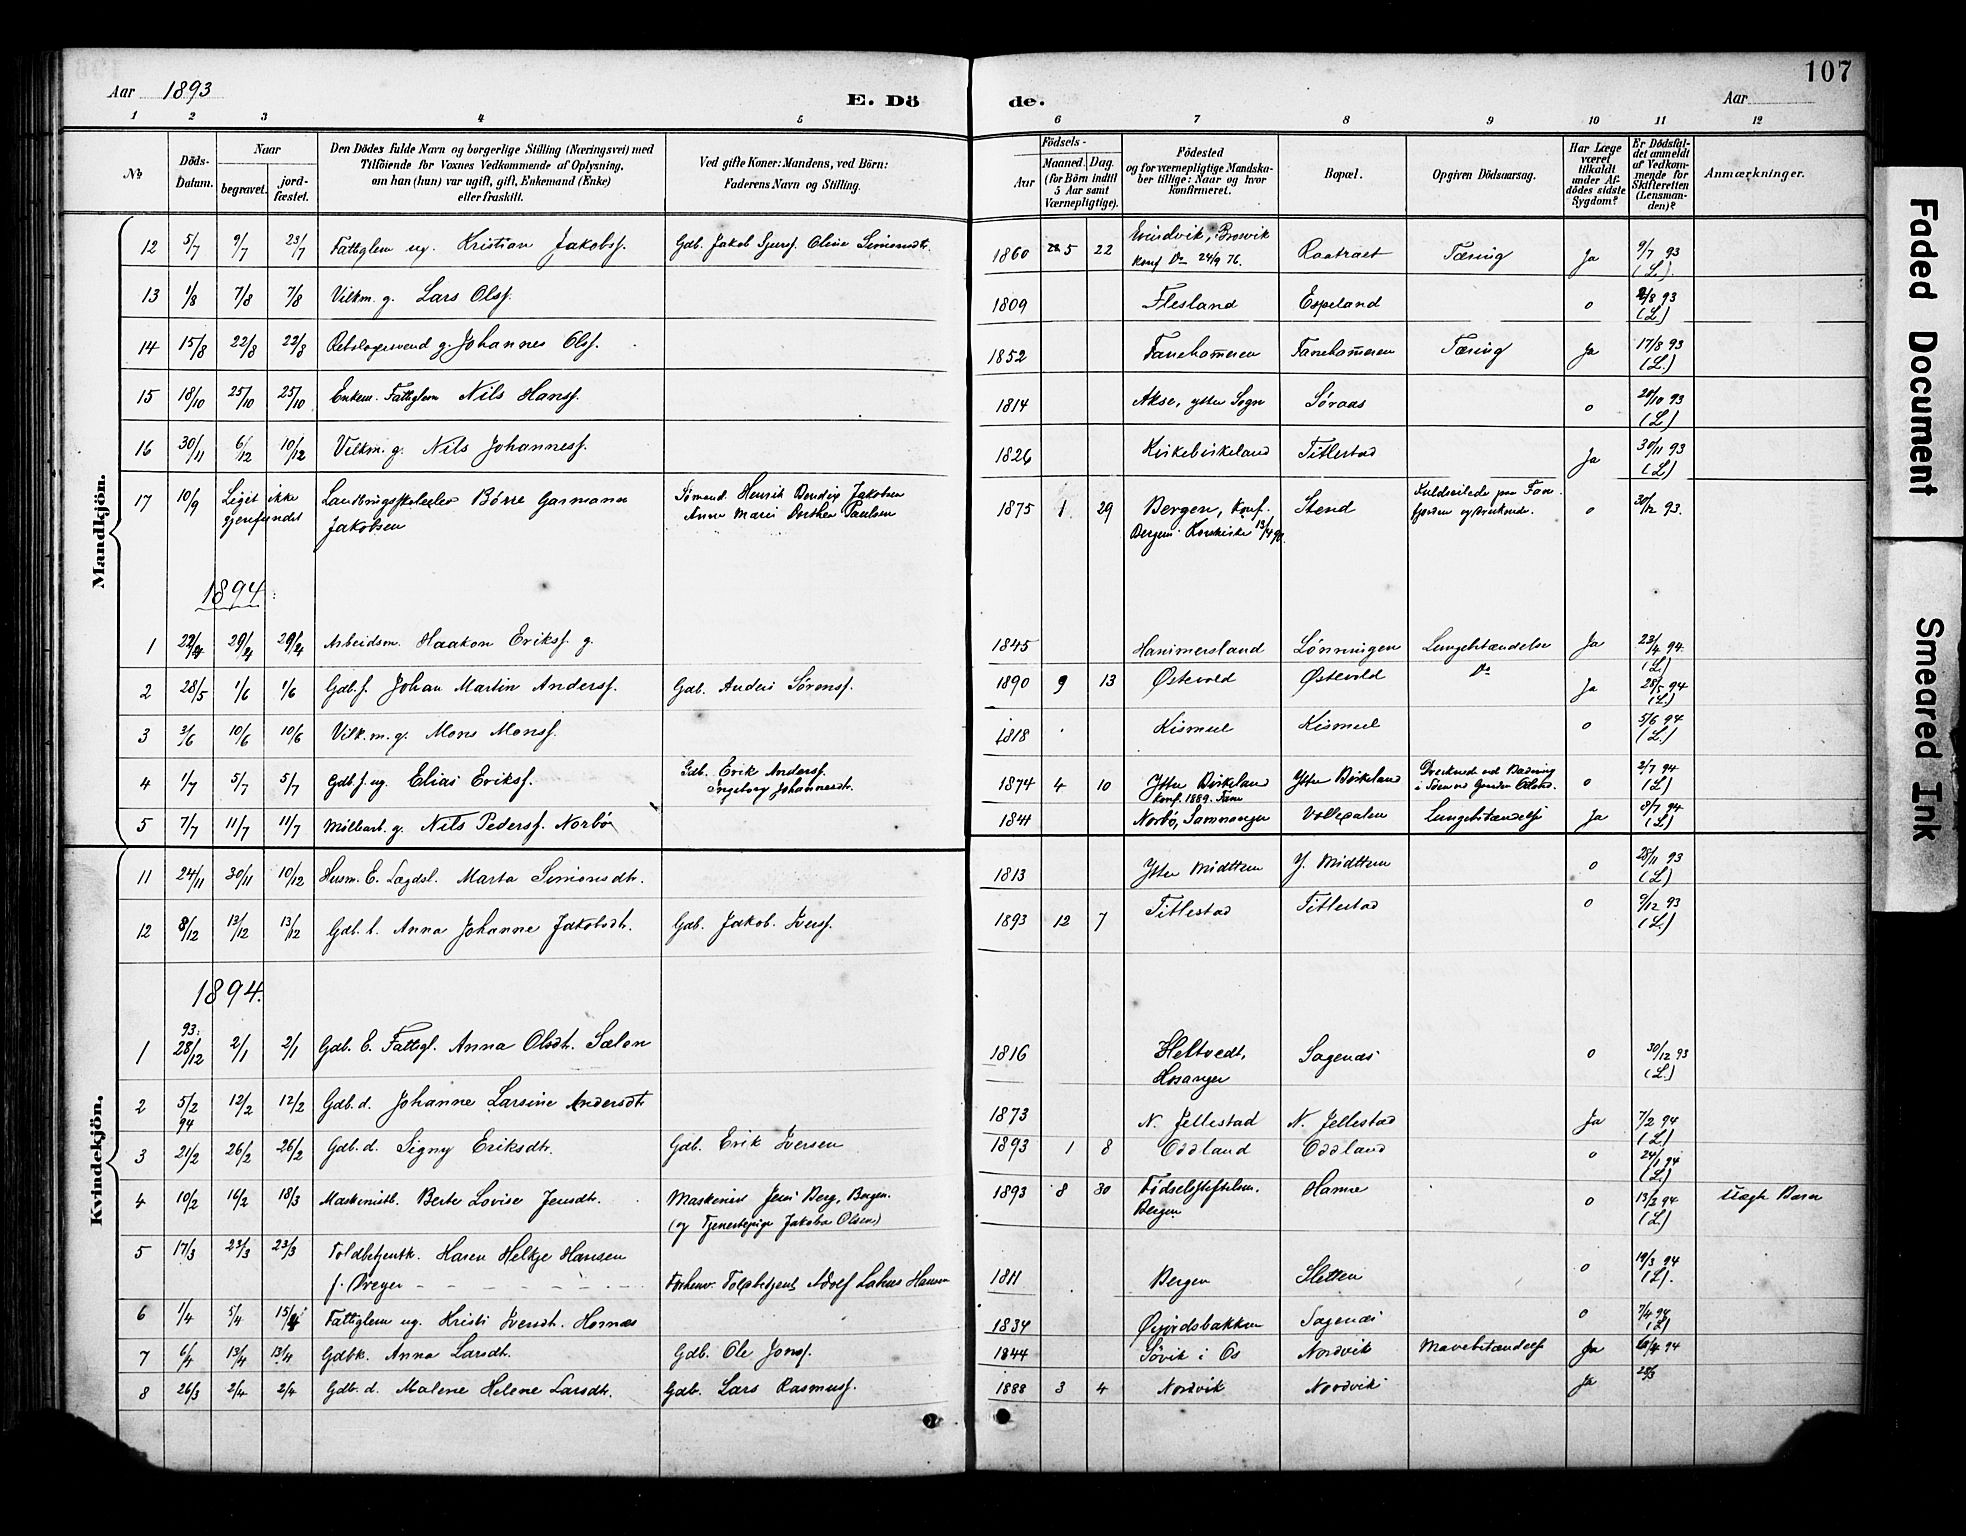 107
Aar 1893
E. Dö
de.
Aar
1 2 3 4 5 6 7 8 9 10 11 12
Nº
Döds-Datum.
Naar
begravet.
jord-fæstet.
Den Dödes fulde Navn og borgerlige Stilling (Næringsvei) med
Tilföiende for Voxnes Vedkommende af Oplysning,
om han (hun) var ugift, gift, Enkemand (Enke)
eller fraskilt.
Ved gifte Koner: Mandens, ved Börn:
Faderens Navn og Stilling.
Födsels-
Aar
Maaned. Dag.
(for Börn indtil
5 Aar samt
Værnepligtige).
Födested
og for værnepligtige Mandska-
ber tillige: Naar og hvor
konfirmeret.
Bopæl.
Opgiven Dödsaarsag.
Har Læge
været
tilkaldt
under Af-
dödes sidste
Sygdom?
Er Dödsfal-
det anmeldt
af Vedkom-
mende for
Skifteretten
(Lensman-
den)?
Anmærkninger.
Mandkjön.
12 5/7 9/7 23/7 Fattiglem ug. Kristian Jakobsf. Gdb. Jakob Sjursf. Oline Simonsdt. 1860 5 22 Evindvik, Brosvik
konf Do 24/9 76. Raatræet Tæring Ja 9/7 93
(L.)
13 1/8 7/8 7/8 Vilkm. g. Lars Olsf. 1809 Flesland Espeland o 2/8 93
(L)
14 15/8 22/8 22/8 Rebslagersvend g. Johannes Olsf. 1852 Fanehammeren Fanehammeren Tæring Ja 17/8 93
(L.)
15 18/10 25/10 25/10 Enkem. Fattiglem Nils Hansf. 1814 Akse, ytre Sogn Søraas o 20/10 93
(L)
16 30/11 6/12 10/12 Vilkm. g. Nils Johannesf. 1826 Kirkebirkeland Titlestad Ja 30/11 93
(L)
17 10/9 Liget ikke
gjenfundet Landbrugsskoleelev Børre Garmann
Jakobsen Sømand. Henrik Bendix Jakobsen
Anna Marie Dorthea Paulsen 1875 1 29 Bergen, Konf.
Bergens Korskirke 13/4 90. Stend Kuldseilede paa Fane-
fjorden og druknede. o 30/12 93.
1894
1 22/4 29/4 29/4 Arbeidsm. Haakon Eriksf. g. 1845 Hammersland Lønningen Lungebetændelse Ja 23/4 94.
(L.)
2 28/5 1/6 1/6 Gdb. f. Johan Martin Andersf. Gdb. Anders Sørensf. 1890 9 13 Østevold Østevold Do Ja 28/5 94
(L.)
3 3/6 10/6 10/6 Vilk. m. g. Mons Monsf. 1818 Kismul Kismul o 5/6 94
(L.)
4 1/7 5/7 5/7 Gdb. f. ug. Elias Eriksf. Gdb. Erik Andersf.
Ingeborg Johannesdt. 1874 4 10 Ytre Birkeland
konf. 1889. Fane Ytre Birkeland Druknede ved Badning
o 2/7 94
(L)
5 7/7 11/7 11/7 Møllearb. g. Nils Pedersf. Norbø 1841 Norbø, Samnanger Lungebetændelse Ja 8/7 94
(L)
Kvindekjön.
11 24/11 30/11 10/12 Husm. E. Lægdsl. Marta Simonsdt. 1813 Ytre Midttun Y. Midttun o 25/11 93
(L)
12 8/12 13/12 13/12 Gdb. b. Anna Johanne Jakobsdt. Gdb. Jakob. Iversf. 1893 12 7 Titlestad Titlestad o 9/12 93
(L.)
1894.
1 93. 28/12 2/1 2/1 Gdb. E. Fattigl. Anna Olsdt. Sælen 1816 Heltvedt,
Hosanger Sagenæs o 30/12 93
(L.)
2 5/2 94 12/2 12/2 Gdb. d. Johanne Larsine Andersdt. 1873 N. Jellestad N. Jellestad Ja 7/2 94
(L.)
3 21/2 26/2 26/2 Gdb. d. Signy Eriksdt. Gdb. Erik Iversen 1893 1 8 Oddland Oddland o 94
(L.)
4 10/2 16/2 18/3 Maskinistb. Berte Lovise Jensdt. Maskinist Jens Berg, Bergen.
(og Tjenestepige Jakoba Olsen) 1893 8 30 Fødselsstiftelsen.
Bergen Hamre o 13/2 94
(L.) Uægte Barn
5 17/3 23/3 23/3 Toldbetjentk. Karen Helkje Hansen
f. Dreyer Forhenv. Toldbetjent Adolf Hansen 1811 Bergen Sletten o 19/3 94
(L).
6 1/4 5/4 15/4 Fattiglem ug. Kristi Iversdt. Hornæs 1834 Øyjordsbakken Sagenæs o 7/4 94
(L)
7 6/4 13/4 13/4 Gdbk. Anna Larsdt. Gdb. Ole Jonsf. 1844 Søvik i Os Nordvik Mavebetændelse Ja 94
8 26/3 2/4 2/4 Gdb. d. Malene Helene Larsdt. Gdb. Lars Rasmusf. 1888 3 4 Nordvik Nordvik Ja 28/3
Faded Document
Smeared Ink